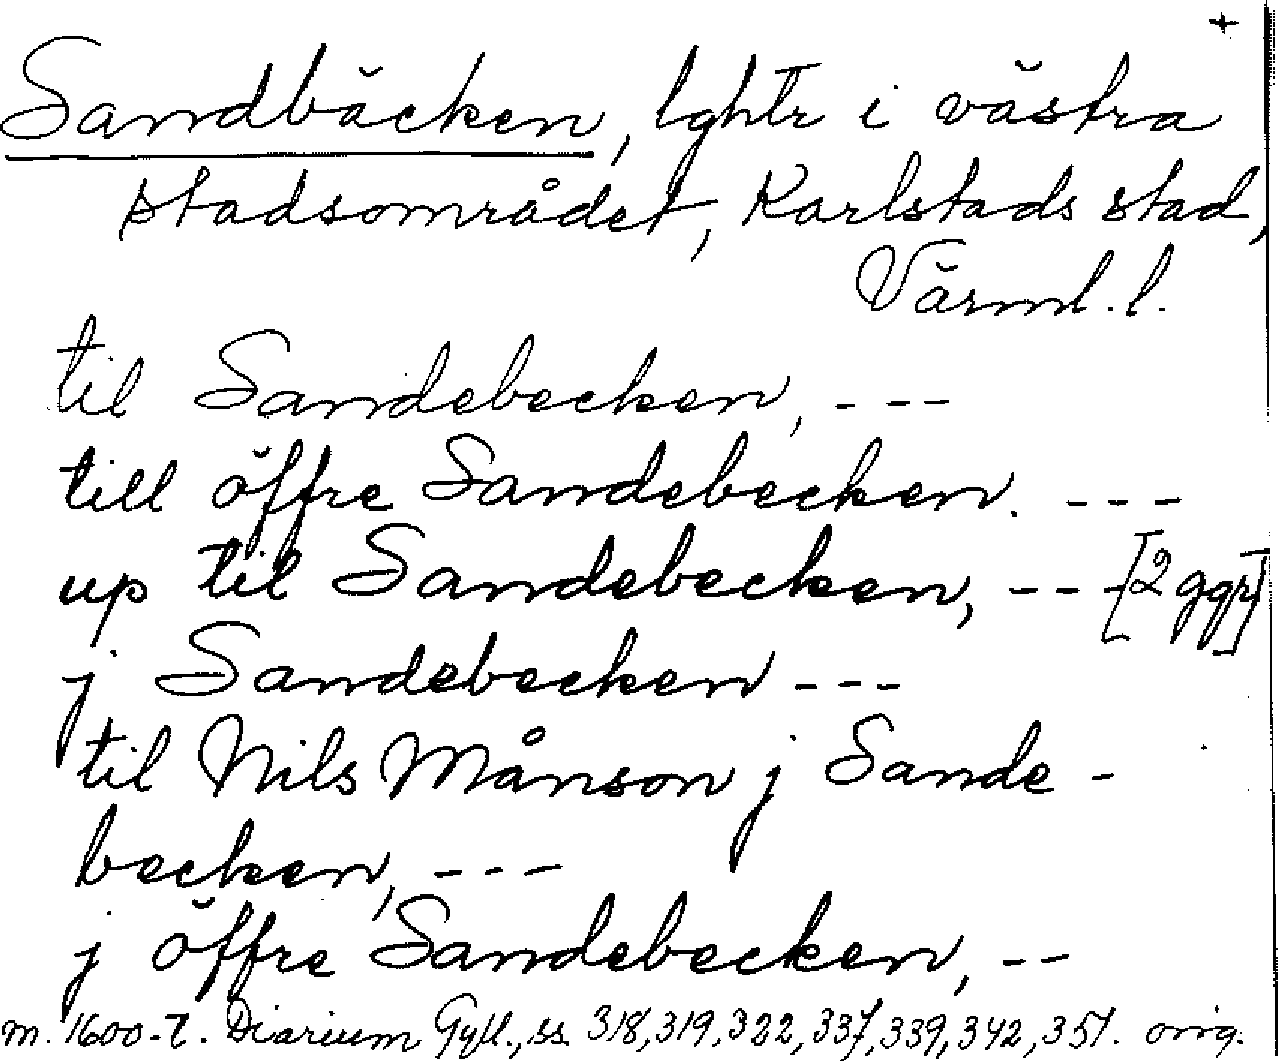 +
Sandbäcken, lghtr i västra
stadsområdet, Karlstads stad,
Värml. l.
til Sandebecken, ---
till öffre Sandebecken. ---
up til Sandebecken, --- [2 ggr]
j Sandebecken ---
til Nils Månson j Sande-
becken, ---
j öffre Sandebecken, --
m. 1600-t. Diarium Gyll., ss. 318, 319, 322, 337, 339, 342, 351. orig.